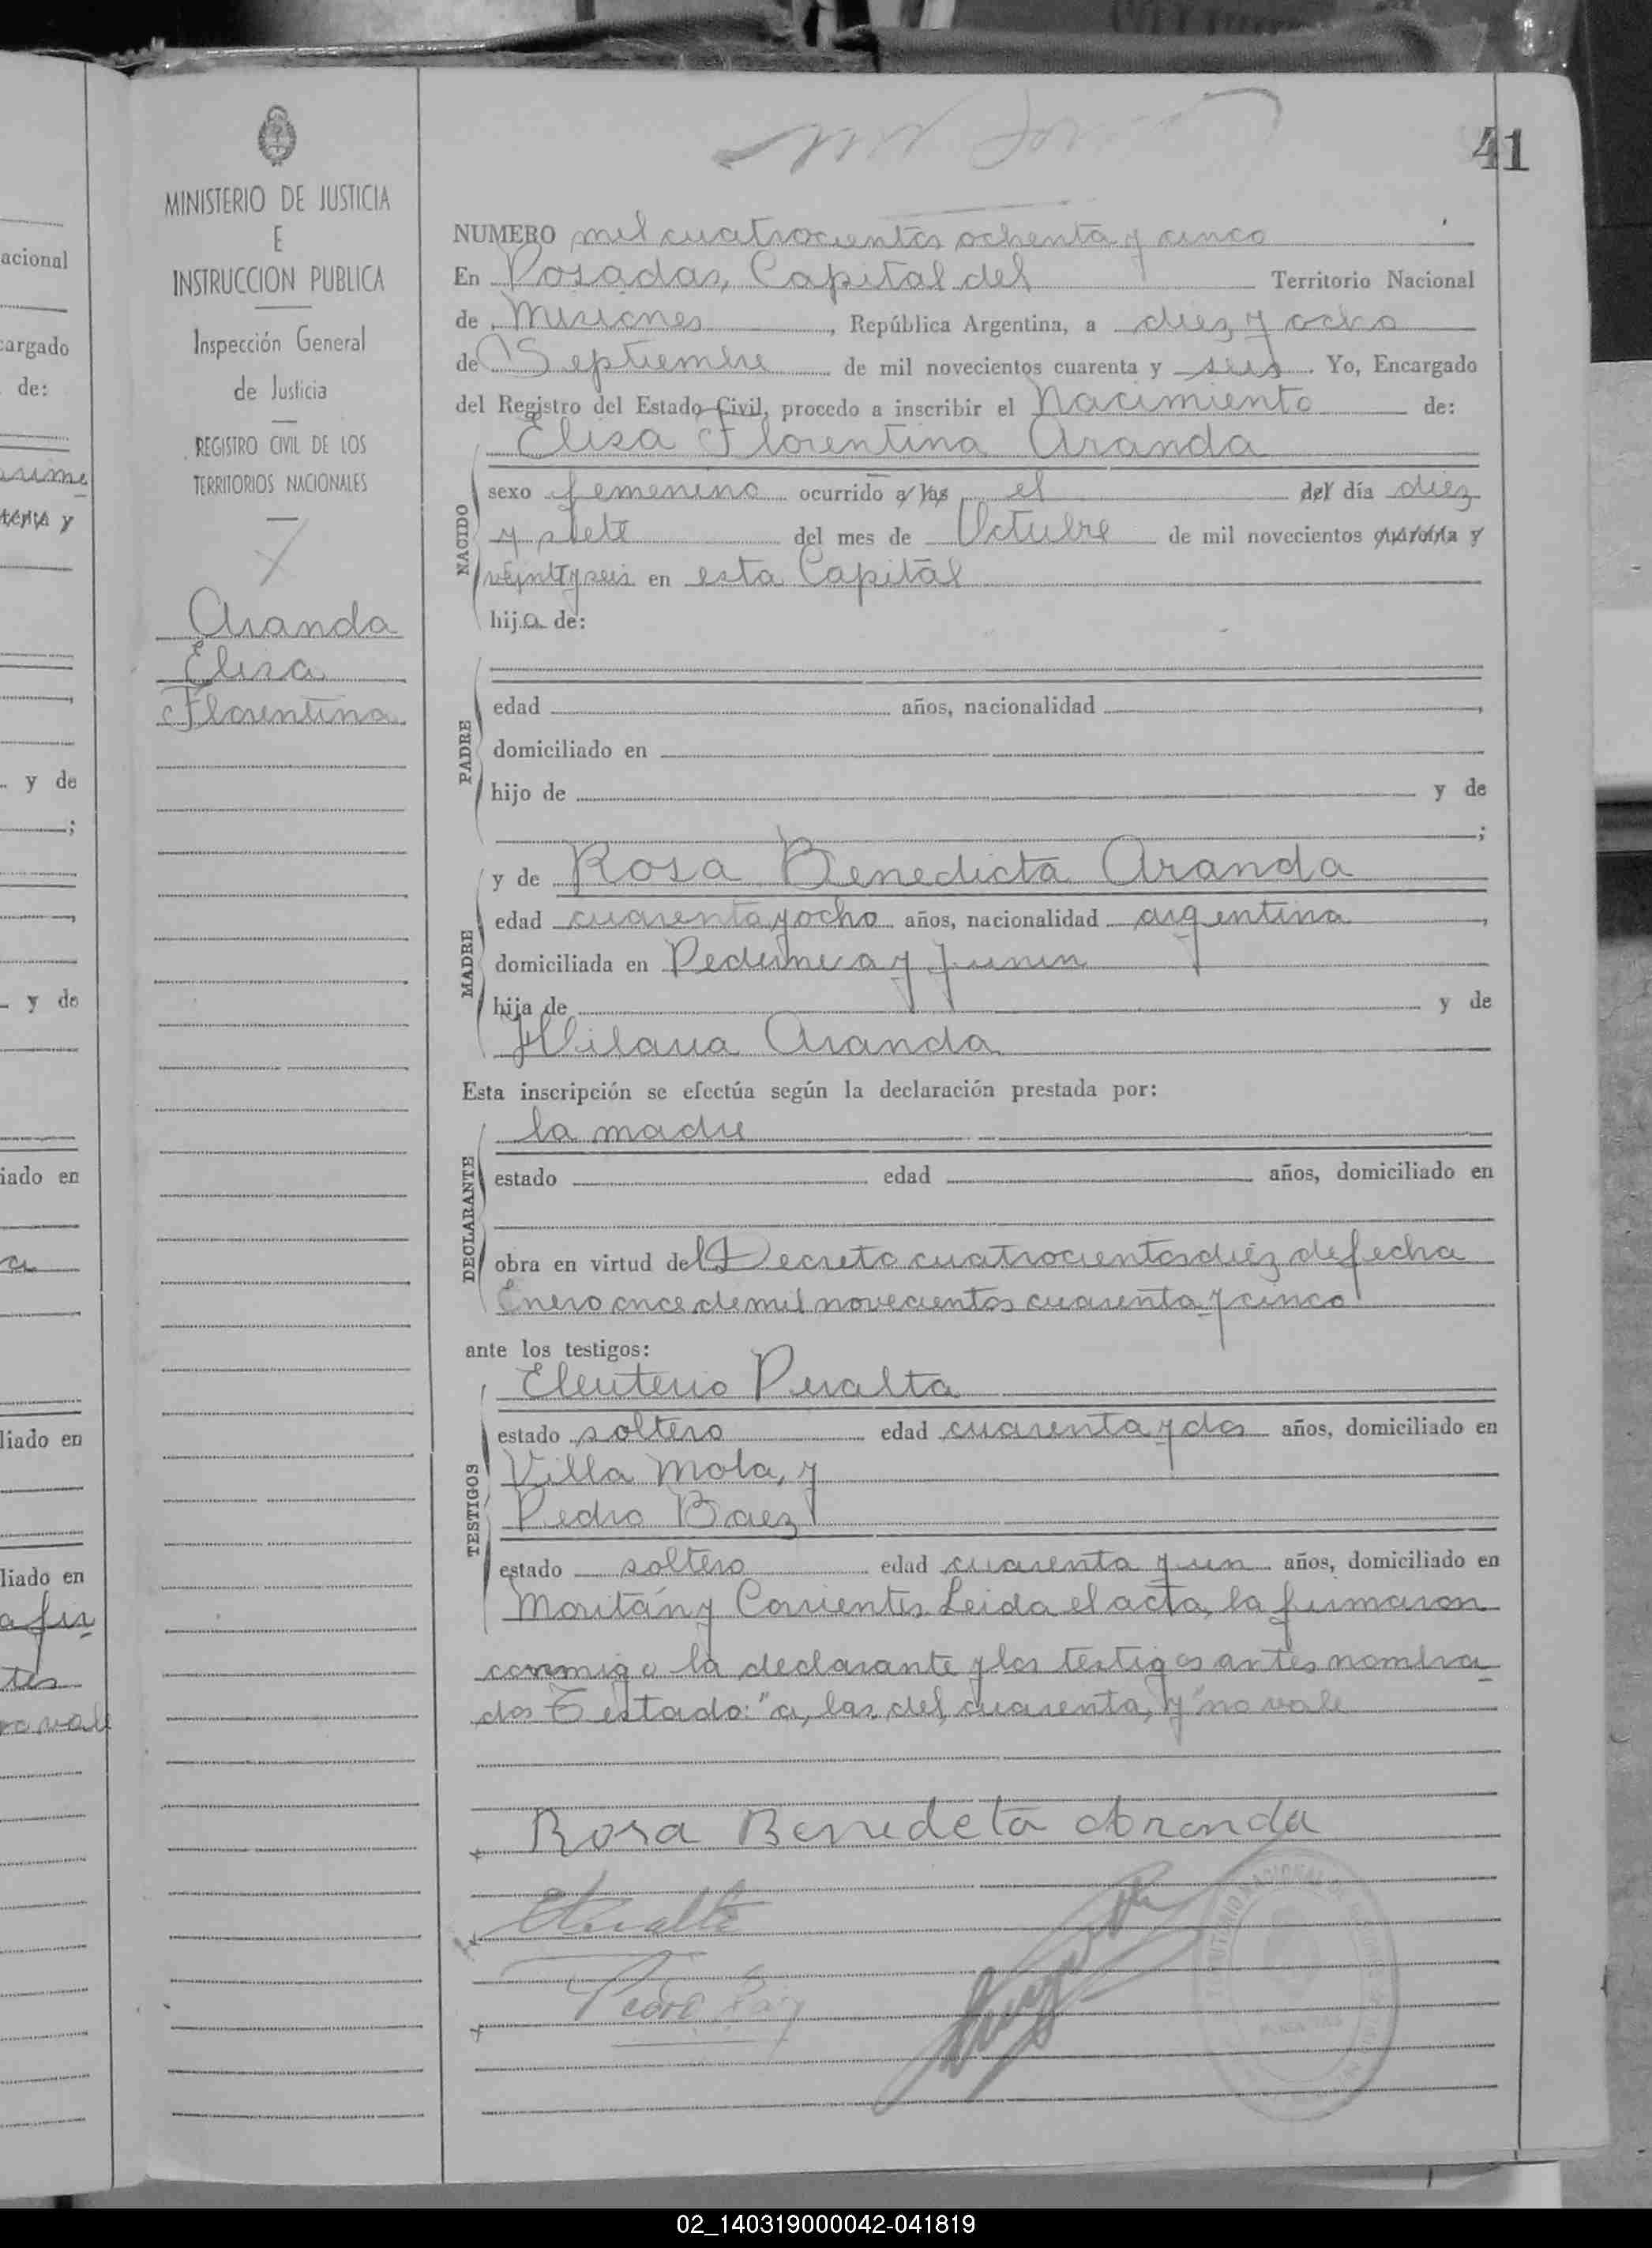 41
MINISTERIO DE JUSTICIA
E
INSTRUCCION PUBLICA
Inspección General
de Justicia
REGISTRO CIVIL DE LOS
TERRITORIOS NACIONALES
Aranda
Elisa
Florentina
NUMERO mil cuatrocientos ochenta y cinco
En Posadas, Capital del Territorio Nacional
de Misiones, República Argentina, a diez y ocho
de Septiembre de mil novecientos cuarenta y seis. Yo, Encargado
del Registro del Estado Civil, procedo a inscribir el Nacimiento de:
Elisa Florentina Aranda
NACIDO
sexo femenino ocurrido a las el del día diez
y siete del mes de Octubre de mil novecientos cuarenta y
veintiseis en esta Capital
hija de:
PADRE
edad años, nacionalidad ,
domiciliado en
hijo de y de
;
MADRE
y de Rosa Benedicta Aranda
edad cuarenta y ocho años, nacionalidad argentina,
domiciliada en y Junin
hija de y de
Hilaria Aranda
Esta inscripción se efectúa según la declaración prestada por:
DECLARANTE
la madre
estado edad años, domiciliado en
obra en virtud del Decreto cuatrocientos diez de fecha
Enero once de mil novecientos cuarenta y cinco
ante los testigos:
TESTIGOS
Eleuterio Peralta
estado soltero edad cuarenta y dos años, domiciliado en
Villa Mola, y
Pedro Baez
estado soltero edad cuarenta y un años, domiciliado en
Moritán y Corrientes. Leida el acta, la firmaron
conmigo la declarante y los testigos antes nombra
dos Testado: "a, las, del, cuarenta, y" no vale
Rosa Benedeta Aranda
EPeralta
Pedro Baez
acional
cargado
de:
y de
;
y de
iado en
liado en
liado en
a fir
tes
no vale
02_140319000042-041819